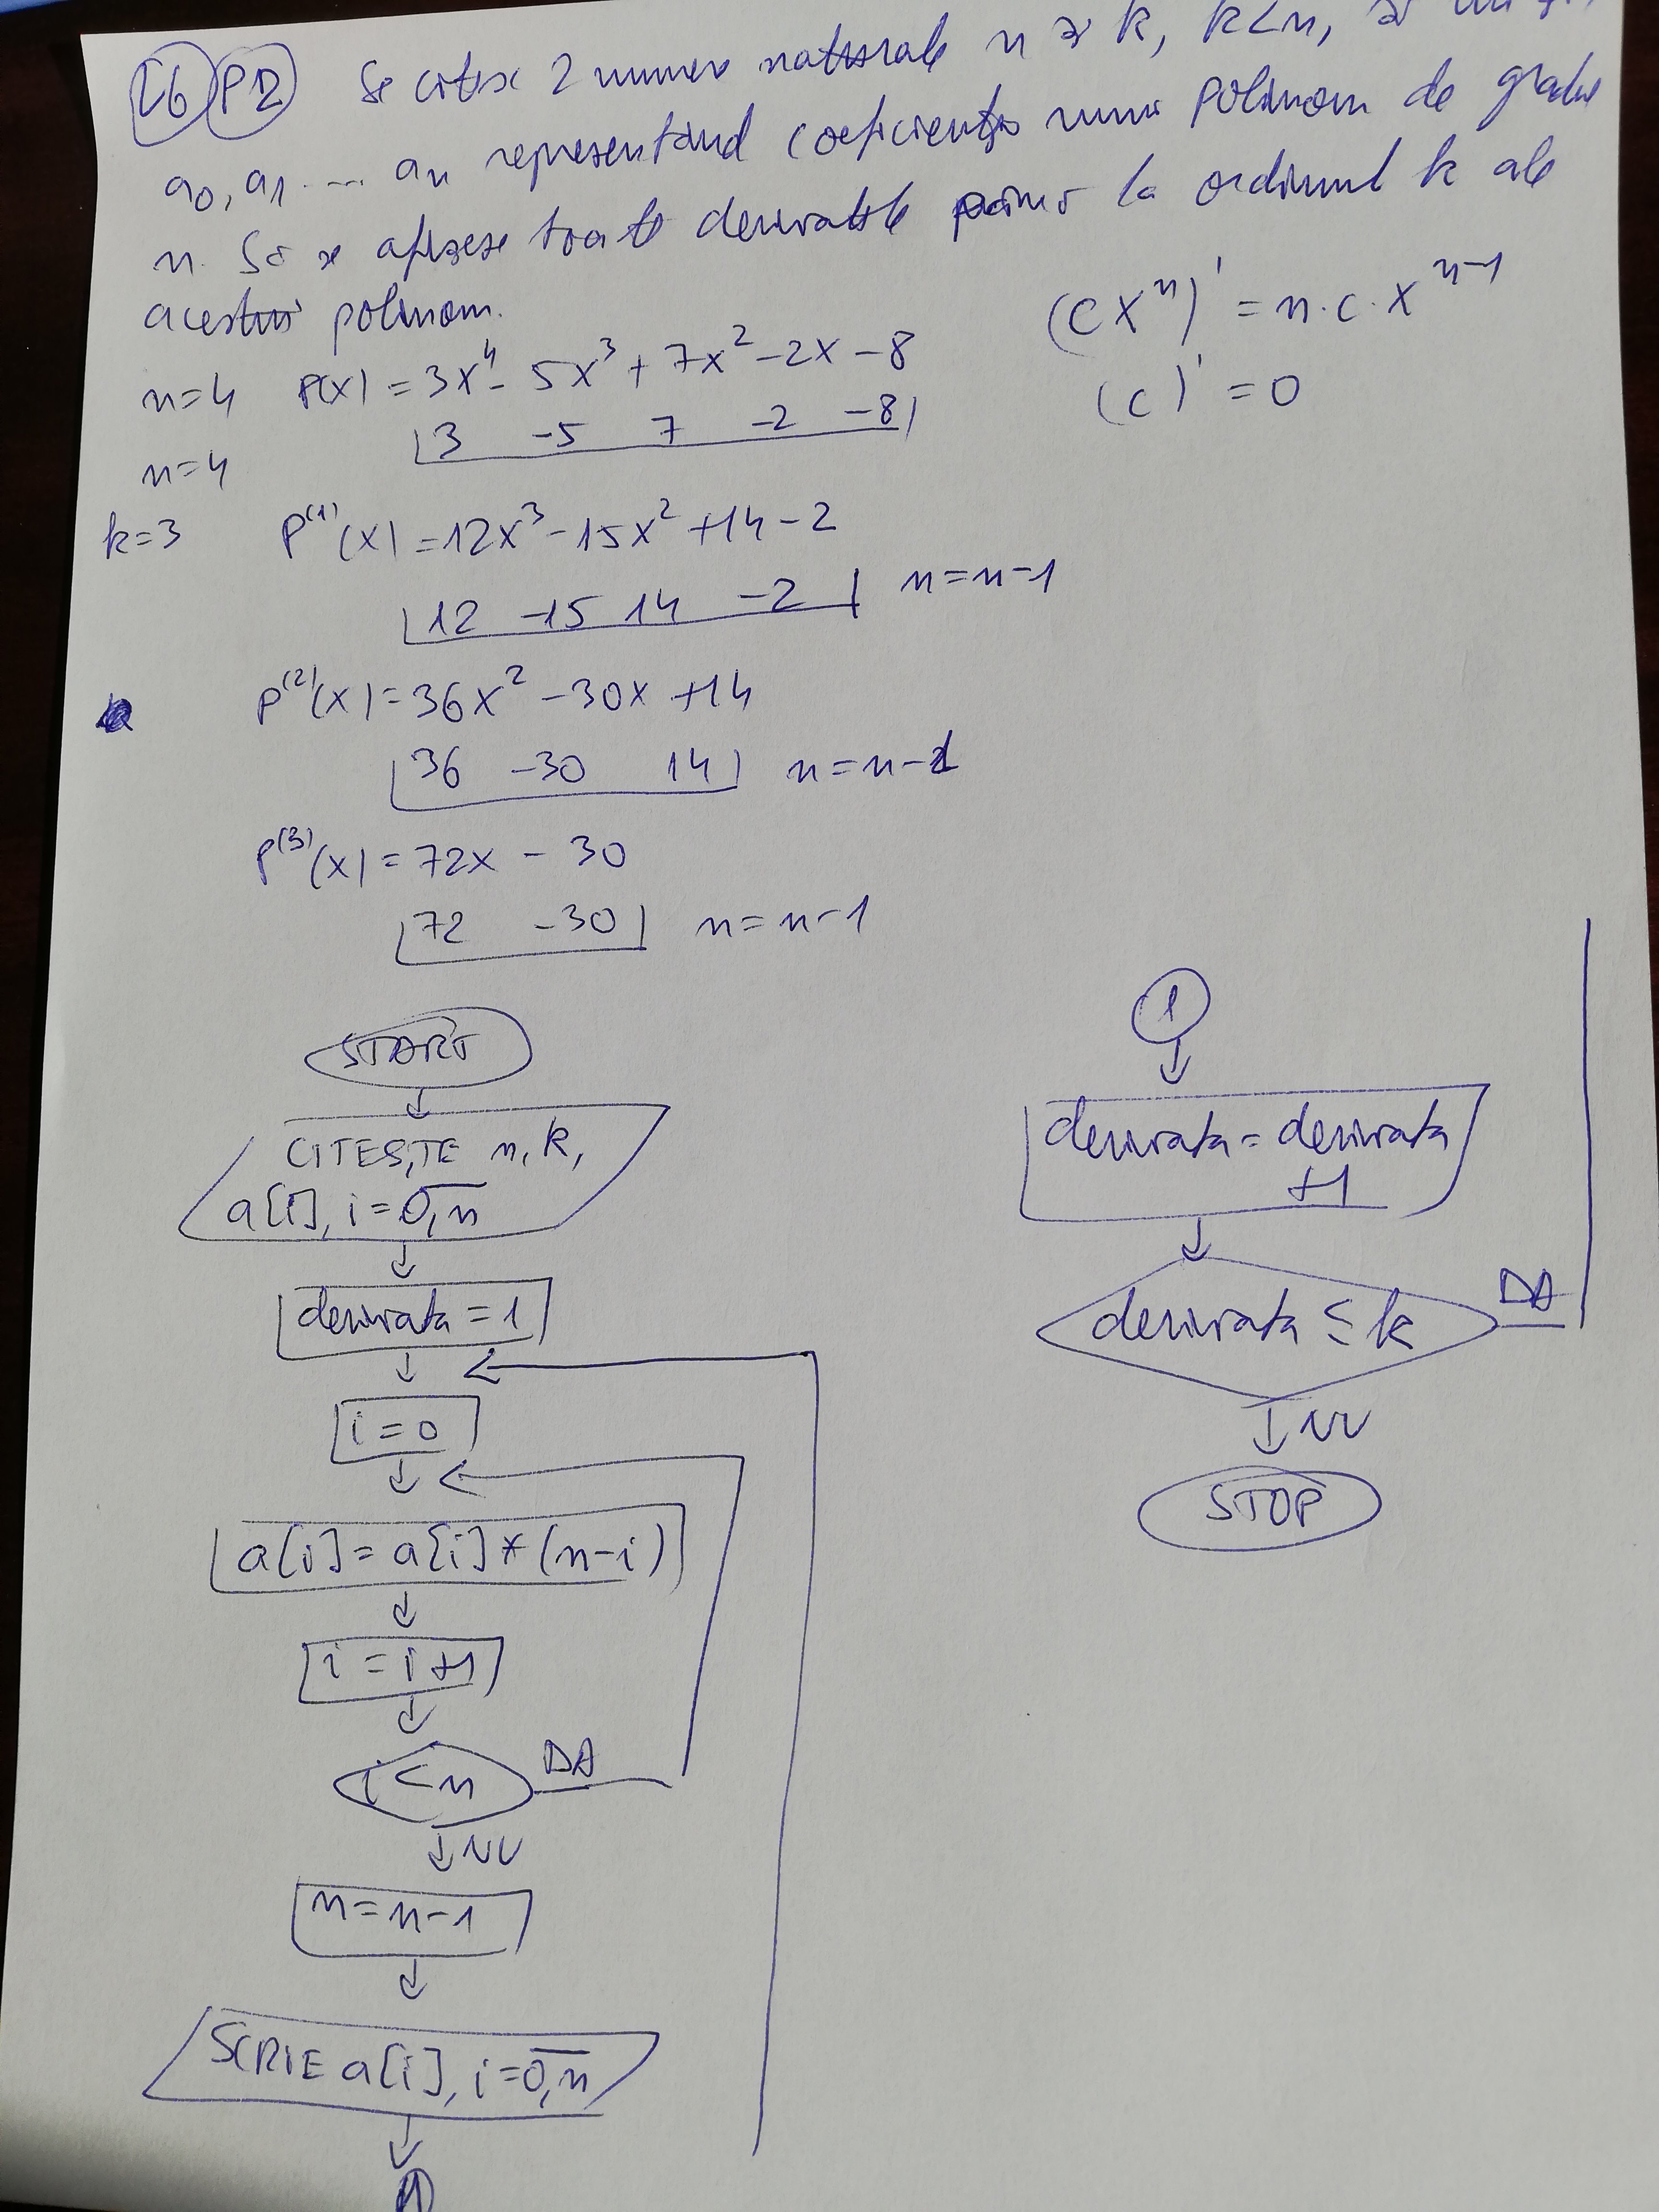 L6 P2 Se citesc 2 numere naturale n și k, k<n, și
a0, a1 ... an reprezentând coeficienții unui polinom de gradul
n. Să se afișeze toate derivatele până la ordinul k ale
acestui polinom.
(cx^n)' = n·c·x^(n-1)
(c)' = 0
n=4 P(x) = 3x^4 - 5x^3 + 7x^2 - 2x - 8
3 -5 7 -2 -8
n=4
k=3 P^(1)(x) = 12x^3 - 15x^2 + 14 - 2
12 -15 14 -2 n = n-1
P^(2)(x) = 36x^2 - 30x + 14
36 -30 14 n = n-1
P^(3)(x) = 72x - 30
72 -30 n = n-1
START
CITEȘTE n, k,
a[i], i=0,n
derivata = 1
i = 0
a[i] = a[i] * (n-i)
i = i+1
i < n DA
NU
n = n-1
SCRIE a[i], i=0,n
1
1
derivata = derivata
+1
derivata ≤ k DA
NU
STOP